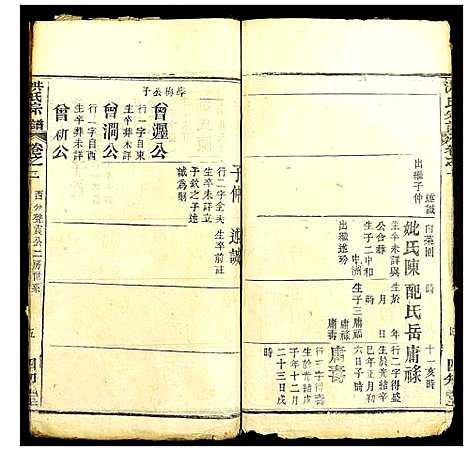 洪氏宗譜
卷之二
述誠
出繼子仲
時
十一亥時
妣氏陳
生歿未詳與
公合葬
生子二中和
出繼述玢
配氏岳
生於 年
月 日
時
生子三庸祿
庸壽
庸祿
行二字得盛
生於光緒辛
巳年正月初
六日子時
庸壽
行二字得
生於光緒
子年十二月
二十三日戌
時
公子
曾渥公
行一字自東
生卒葬未詳
曾澗公
行一字自西
生卒葬未詳
曾初公
子仲
行一字全夫
生卒未詳立
子敘之子述
誠為嗣
述誠
生卒前註
洪氏宗譜
卷之二
西分發貴公二房世系
五